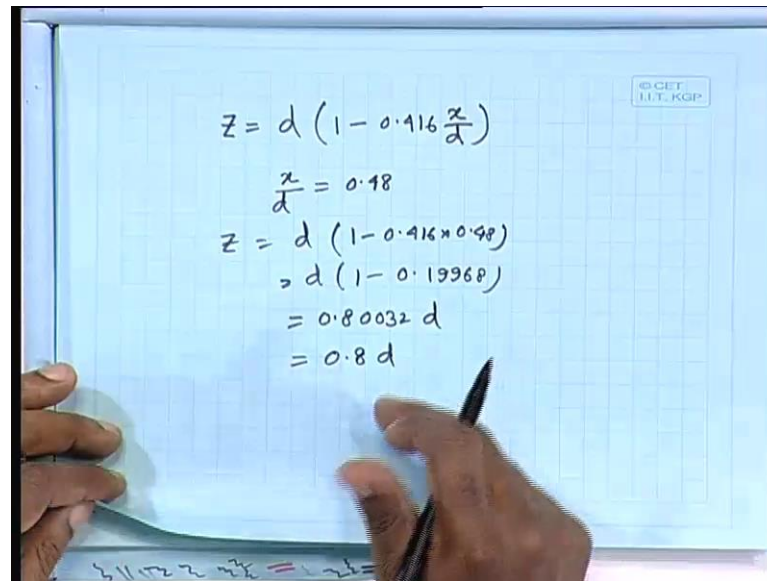 © CET
I.I.T. KGP
z = d (1 - 0.416 x/d)
x/d = 0.48
z = d (1 - 0.416 × 0.48)
= d (1 - 0.19968)
= 0.80032 d
= 0.8 d